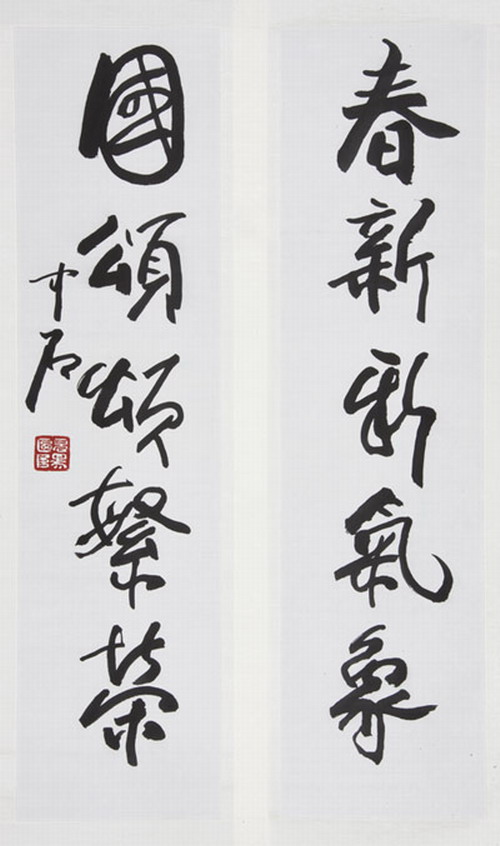 春新新氣象
國頌頌繁榮
中石